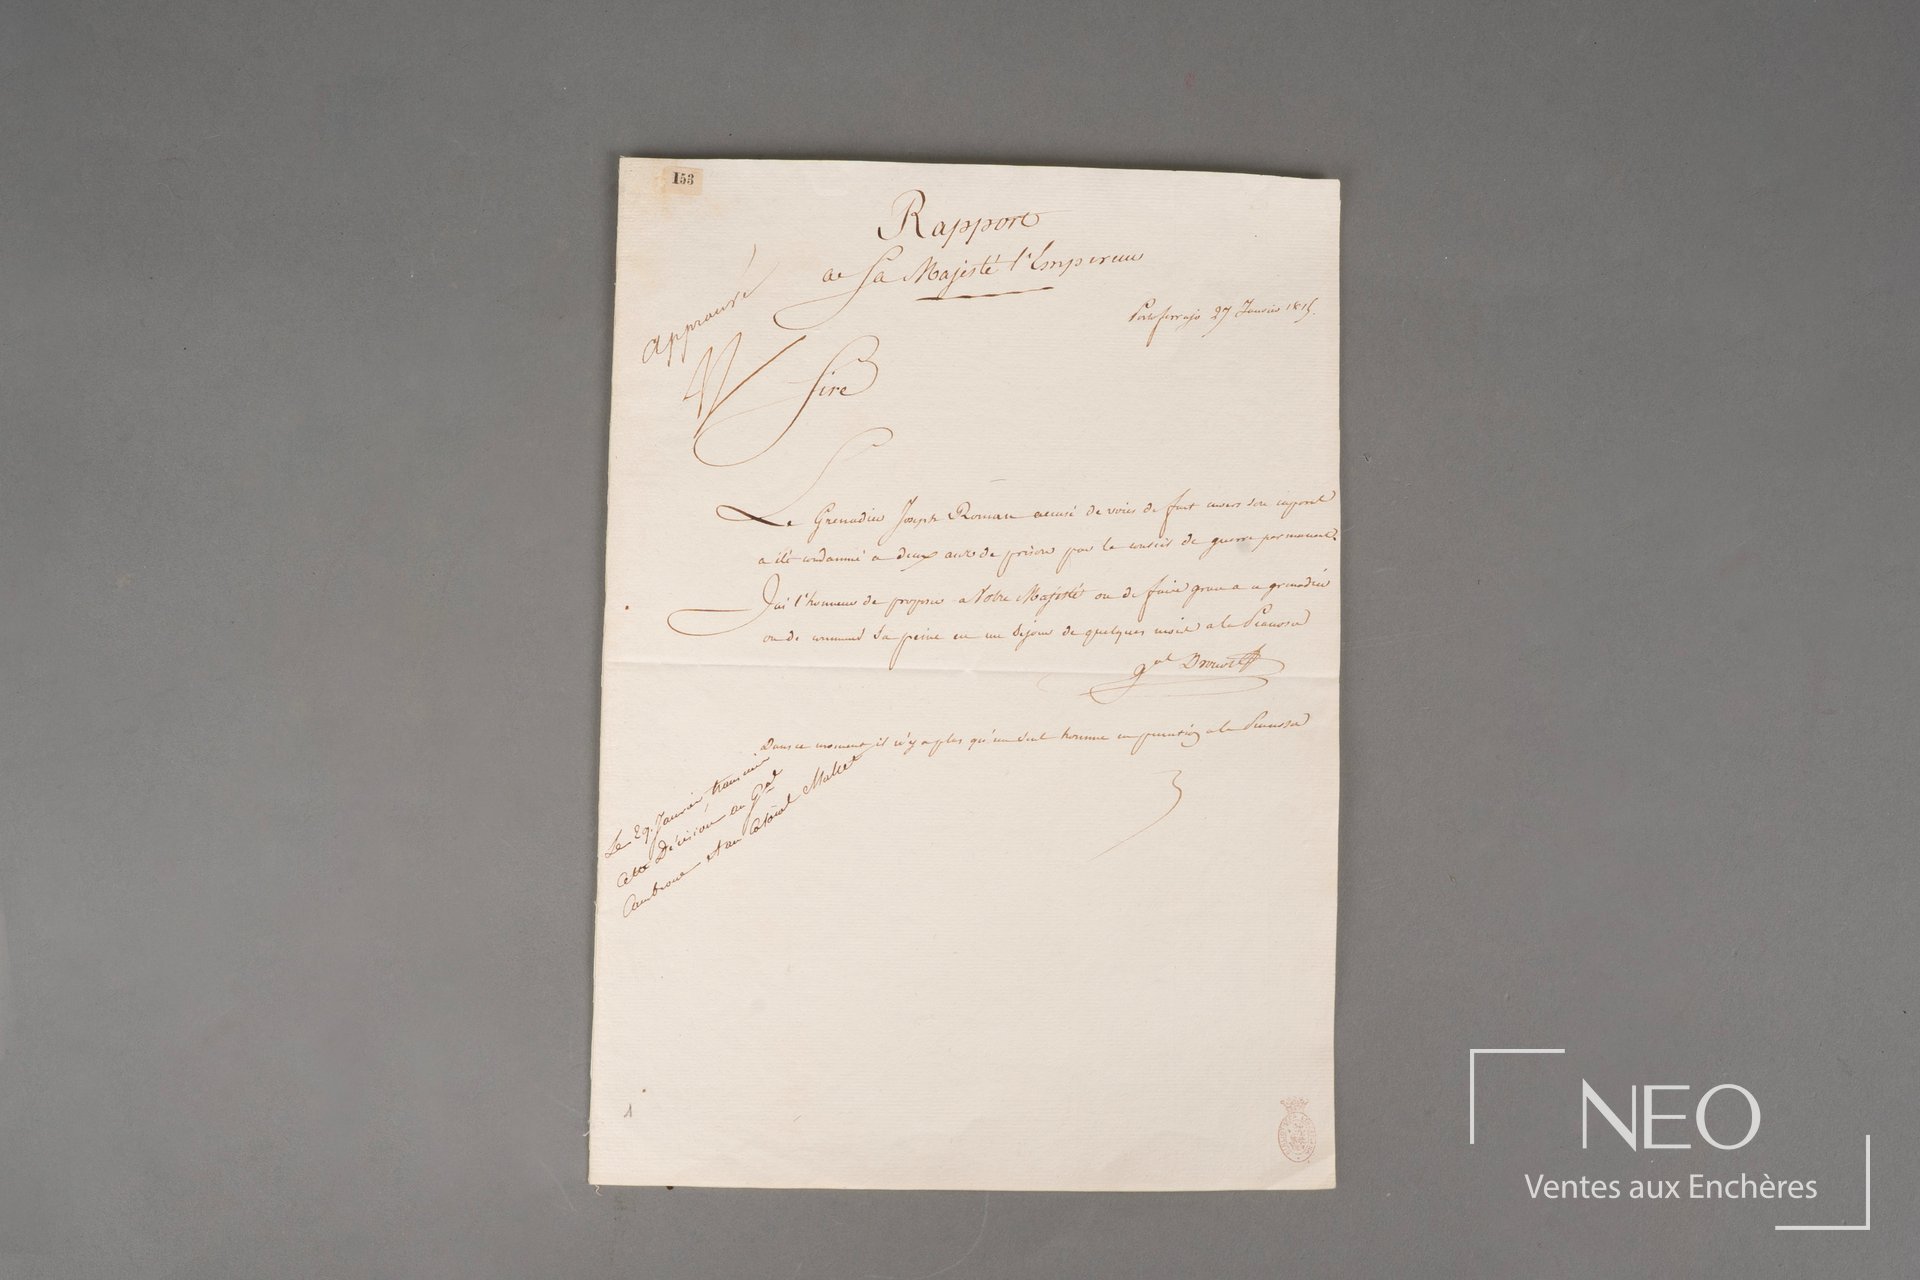 153
Rapport
a Sa Majesté l'Empereur
Portoferrajo 27 Janvier 1815.
approuvé
Sire
Le Grenadier Joseph Roman accusé de voies de fait envers son caporal
a été condamné a deux ans de prison par le conseil de guerre permanent.
J'ai l'honneur de proposer a Votre Majesté ou de faire grace a ce grenadier
ou de commuer sa peine en un séjour de quelques mois a la Pianosa
gal Drouot
Dans ce moment il n'y a plus qu'un seul homme en punition a la Pianosa
Le 29. Janvier, transmis
cette Décision au Gal
Cambrone et au Colonel Mallet
1
NEO
Ventes aux Enchères